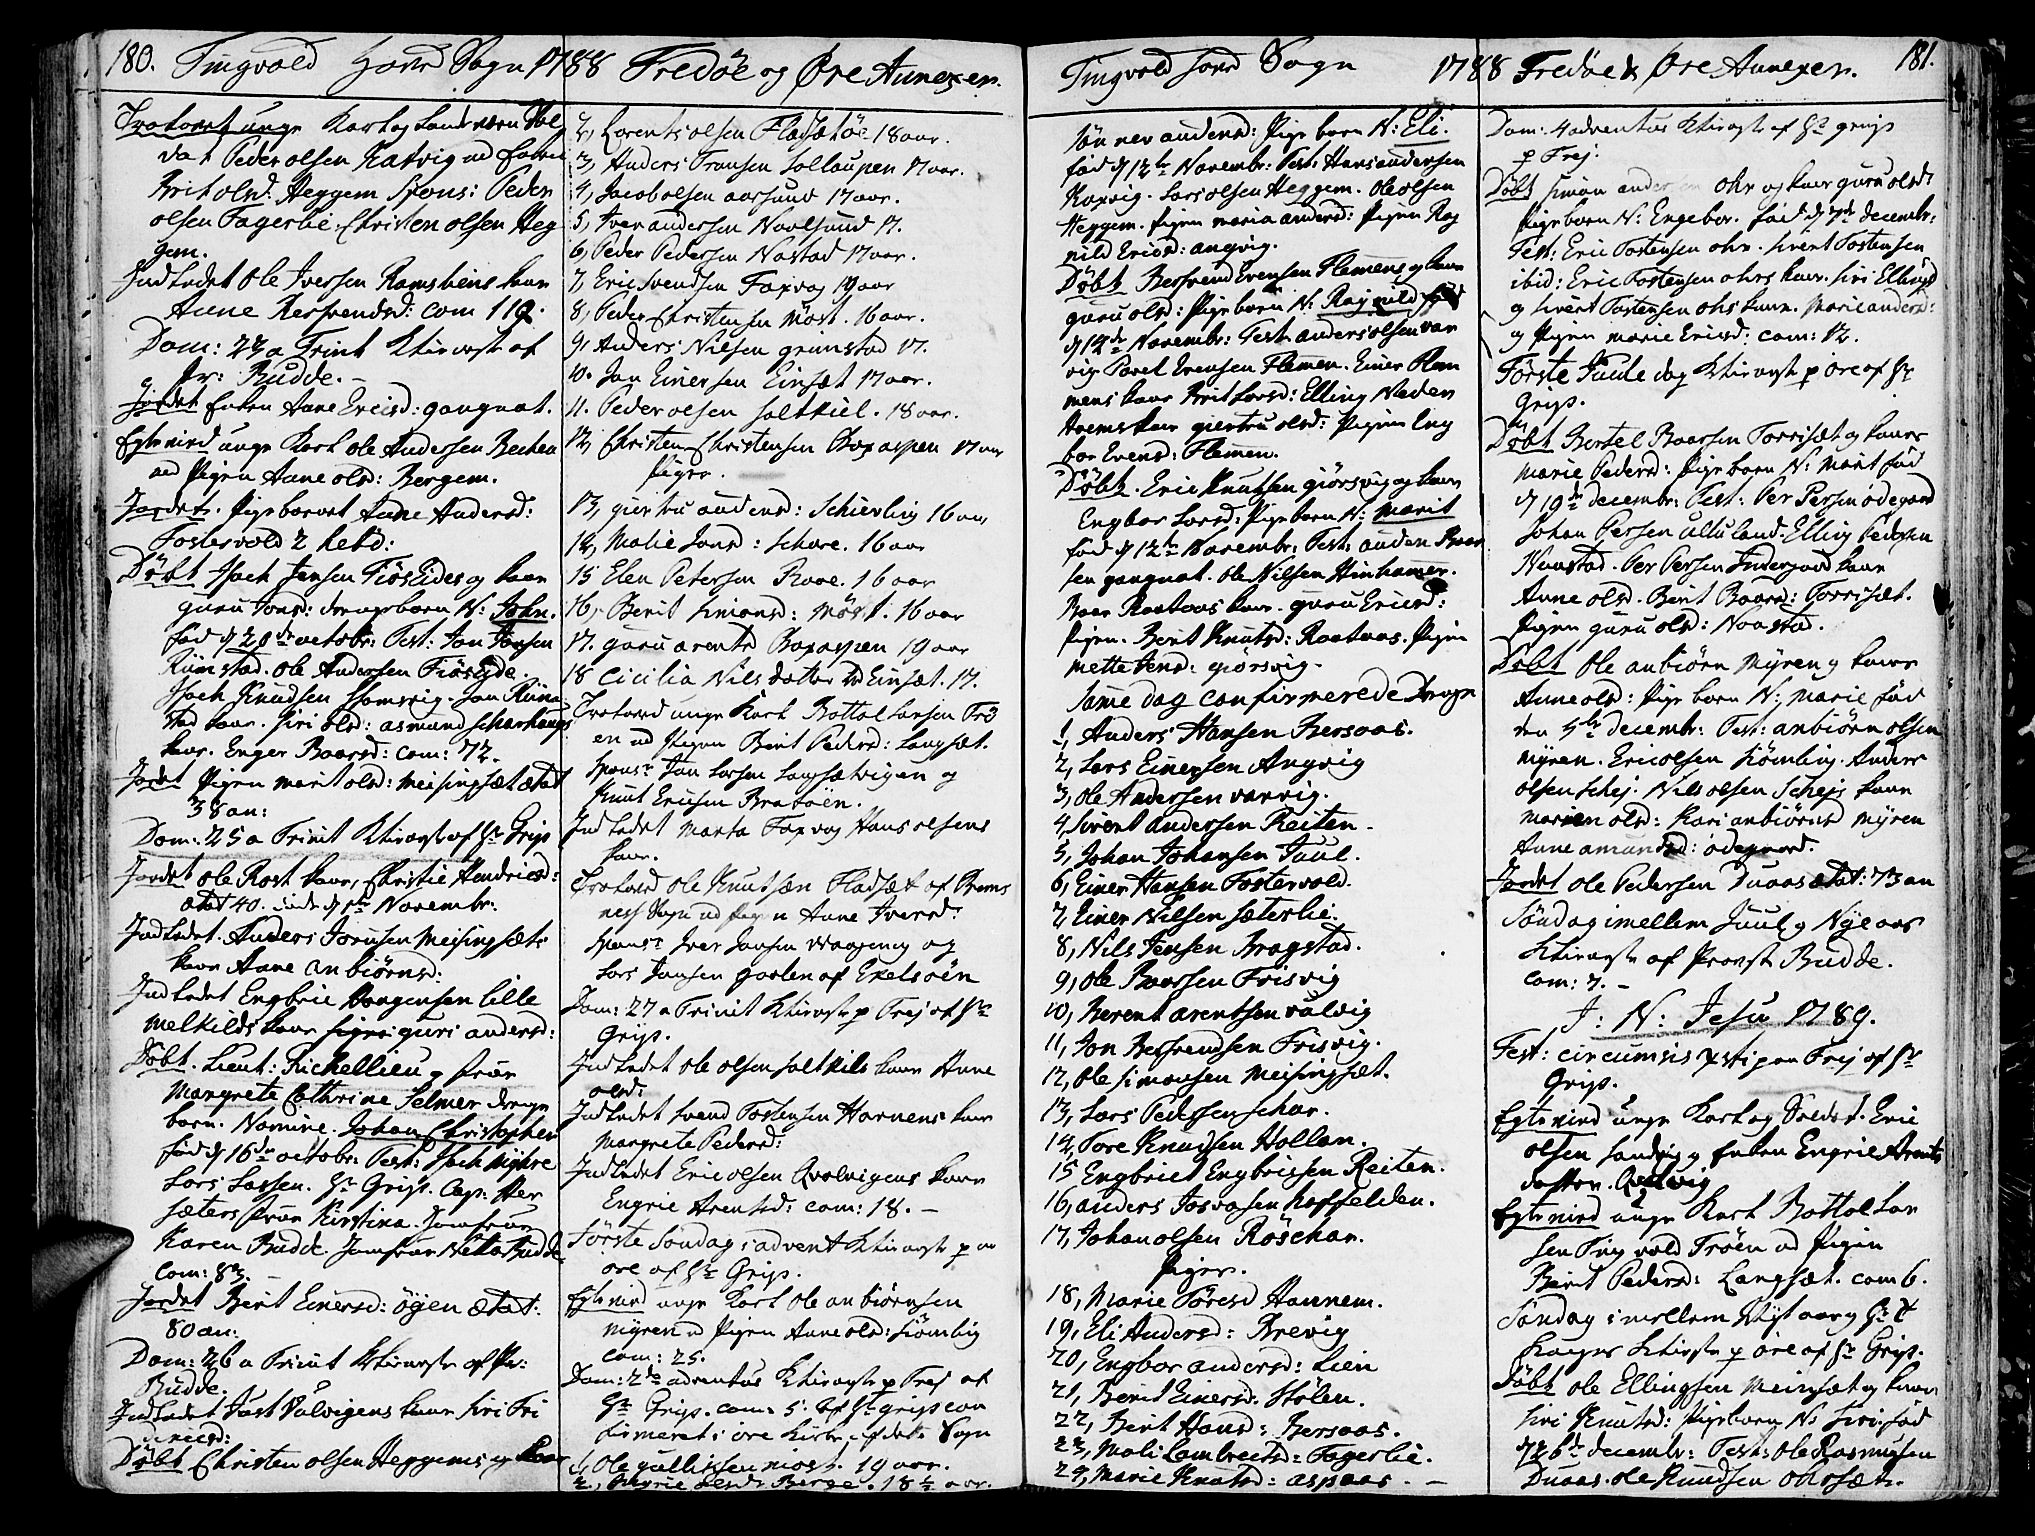 180. Tingvold Hoved Sogn 1788 Fredøe og Øre Annexer.
Trolovet unge Karl og Landværn Sol
dat Peder olsen Ratvig ud
Brit olsd: Heggem Spons: Peder
olsen Fagerlie, Christen olsen Heg
gem.
Indledet Ole Iversen Ramsbens kone
Anne Kersrendsd: com 112.
Dom: 23 a Trinit K: tieneste af
Pr: Budde.
Jordet Enken Anne Ericsd: gangnat.
Egtevied unge Karl ole Andersen Becken
ud Pigen Anne olsd: Bergem.
Jordet. Pigebarnet Anne Andersd:
Fostervold 2
Døbt Isach Jensen Fiøslides og kone
guru Jonsd: drengebarn N: John.
fød d 20de octobr: Test: Jon Jonsen
Rimstad. ole Andersen Fiøslide.
Isach Knudsen
stad kone. Siri olsd: asmund
kone. Enger Baarsd: com: 72.
Jordet Pigen marit olsd: Meisingsæt ætat
38 an:
Dom: 25 a Trinit K: tieneste af Hr Grip
Jordet ole Rost kone, Christie Hendricsd:
ætat 40. døde d 1te Novembr:
Indledet. Anders Jonsen Meisingsæts
kone Anne anbiørnsd:
Indledet Engbric Jørgensen lille
Melkilds kone guri andersd:
Døbt. Lieut: Richellieu og frue
Margrete Cathrine Selmer drenge
barn. Nomine. Johan Christopher
fød d 16de octobr: Test: Isach
Lars Lassen. Hr Grip. Cap: Her
sæters frue Kirstina. Jomfrue
Karen Budde. Jomfrue Netta Budde
com: 83.
Jordet Berit Einersd: øyen ætat:
80 an:
Dom: 26 a Trinit K: tieneste af Pr:
Budde.
Indledet Just Valvigens kone Siri Fri
dricsd:
Døbt Christen olsen Heggems og kone
2, Lorents olsen Fladsetøe 18 aar.
3, Anders Fransen sollaupen 17 aar.
4, Jacob olsen aarsund 17 aar.
5, Iver andersen Navlsund 17.
6, Peder Pedersen Nastad 17 aar.
7, Eric svendsen Foxvog 19 aar
8, Peder Christensen Möst. 16 aar.
9, Anders Nilsen grimstad 17.
10. Jon Einersen Einset 17 aar.
11. Peder olsen saltkiel. 18 aar.
12, Christen Christensen Boxaspen 17 aar
Piger.
13, giertru andersd: Schierling 16 aar
14, Malie Jonsd: Schare. 16 aar
15 Elen Petersen Rooe. 16 aar
16, Berit Simonsd: Möst. 16 aar
17. guru arentsd Boxaspen 19 aar
18 Cicilia Nils datter Einset. 17.
Trolovet unge Karl Bottol Larsen Trö
en ud Pigen Berit Pedersd: Langsæt.
Spons: Jon Larsen Langsetvigen og
Knut Ericsen Bratöen.
Indledet Marta Foxvog Hans olsens
kone.
Trolovet ole Knutsen Fladset af Brems
nes Sogn ud Pigen Anne Iversd:
Spons: Iver Jansen og
Lars Jansen gorten af Exelsöen
Dom: 27 a Trinit K: tieneste p Frej af Hr
Grip.
Indledet ole olsen saltkils kone Anne
olsd:
Indledet svend Tostensen Harnens kone
Margrete Pedersd:
Indledet Eric olsen Qvalvigens kone
Engrie Arentsd: com: 18. –
Første Søndag i advent K: tieneste p
øre af Hr Grip.
Egtevied unge Karl ole anbiørnsen
myren ud Pigen Anne olsd: Siömlig
com: 25.
Dom: 2de adventus K: tieneste p Frej af
Hr Grip. com: 5. af Hr grip con
firmeret i øre Kirke af dets Sogn
1, Ole gullixsen möst. 19 aar.
2, Engrie olsd: Berge. 18½ aar.
Tingvold hoved Sogn 1788 Fredøe & Øre Annexer. 181.
andersd: Pige barn N: Eli.
fød d 12te Novembr: Test: Hans andersen
Kaxvig. Lars olsen Heggem. Ole olsen
Heggem. Pigen maria andersd: Pigen Rag
nild Ericsd: angvig.
Døbt Bersvend Evensen Flemens og kone
guru olsd: Pige barn N: Ragnild fød
d 14de Novembr: Test anders olsen var
vig Povel Evensen Flemen. Einer Flem
mens kone Brit Larsd: Elling Neder
kone giertru olsd: Pigen Eng
bor Evensd: Flemen.
Døbt. Eric Knutsen giörsvig og kone
Engbor Larsd: Pige barn N: Marit
fød d 12te Novembr: Test: auden Baar
sen gangnat. ole Nilsen Hinhamer.
Baar Raataas kone. guru Ericsd:
Pigen. Berit Knutsd: Raataas. Pigen
Mette Jensd: giörsvig.
Samme dag confirmerede Drenge
1, Anders Hansen Bersaas.
2, Lars Einersen Angvig
3, ole Andersen varvig.
4, Sivert andersen Reiten.
5, Johan Johansen Juul.
6, Einer Hansen Fostervold.
7, Einer Nilsen sæterlie.
8, Nils Jensen Bragstad.
9, ole Baarsen Frisvig
10, Berent arentsen valvig
11, Jon Bersvendsen Frisvig.
12, ole Simonsen Meisingsæt.
13, Lars Pedersen schar.
14, Tore Knudsen Hollan.
15 Engbriet Engbritsen Reiten.
16, anders Josvasen Hoffelden.
17, Johan olsen Röschar.
Piger.
18, Marie Toresd Hannem.
19, Eli Andersd: Brevig
20, Engbor andersd: Lien
21, Berit Einersd: Stölen.
22, Berit Hansd: Bersaas.
23, Mali Lambrectsd: Fagerlie.
24, Marie Knutsd: aspaas. –
Dom: 4 adventus K: tieneste af Hr grip
p Frej.
Døbt Simon andersen ohr og kone guru olsd:
Pigebarn N: Engebor. fød d 7de decembr:
Test: Eric Tostensen ohr. sivert Tostensen
ibid: Eric Tostensen ohrs kone. siri Ellingsd
og sivert Tostensen ohrs kone. Marie andersd:
og Pigen marie Ericsd: com: 12.
Første Juule dag K: tieneste p øre af Hr
Grip.
Døbt Bertel Baarsen Torrisæt og kones
Marie Pedersd: Pige barn N: Marit fød
d 19de decembr: Test: Per Persen ödegaard
Johan Persen ulluland. Elling Pedersen
Naastad. Per Persen kone
Anne olsd. Berit Baarsd: Torrisæt.
Pigen guru olsd: Naastad.
Døbt ole anbiørn Myren og kones
Anne olsd: Pige barn N: Marie fød
den 5te decembr: Test: anbiörn olsen
Myren. Eric olsen Siömlig. Anders
olsen Schej. Nils olsen Schejs kone
marien olsd: Kari anbiörnsd Myren
Anne amundsd: ödegaard.
Jordet ole Pedersen Duaas ætat: 73 an
Søndag imellem Juul og Nye aar
K: tieneste af Provst Budde.
com: 7. –
I: N: Jesu 1789.
Fest: circumsis xsti paa Frej af Hr
Grip.
Egtevied unge Karl og Soldat. Eric
olsen sandvig og Enken Engrie Arents
datter. Qvalvig
Egtevied unge Karl Bottol Lar
sen Tingvold Tröen ud Pigen
Berit Pedersd: Langsæt. com 6.
Søndag imellem Nyt aar og H: 3
konger K: tieneste p øre af Hr Grip.
Døbt ole Ellingsen Meinset og kones
Siri Knutsd: Pigebarn N: Siri. fød
d 26de decembr: Test: ole Rasmusen
Duaas. ole Knudsen ohrset.